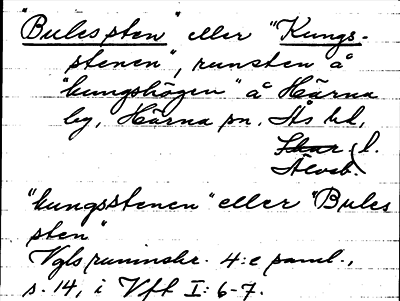 "Bulessten" eller "Kungs-
stenen", runsten å
"kungshögen" å Härna
by, Härna sn. Ås hd,
Skar. l.
Älvsb.
"kungsstenen" eller "Bules
sten"
Vgls runinskr. 4:e saml.,
s. 14, i Vft I: 6-7.